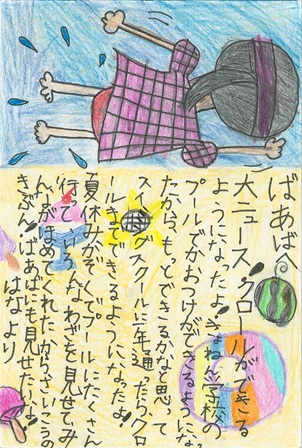 ばあばへ
大ニュース!クロールができる
ようになったよ!きょねん学校の
プールでかおつけができるようになっ
たから、もっとできるかなと思って
スイミングスクールに一年通ったらクロ
ールまでできるようになったよ!
夏休みかぞくでプールにたくさん
行っていろんなわざを見せてみ
んながほめてくれたからさいこうの
きぶん!ばあばにも見せたいよ!
はなより